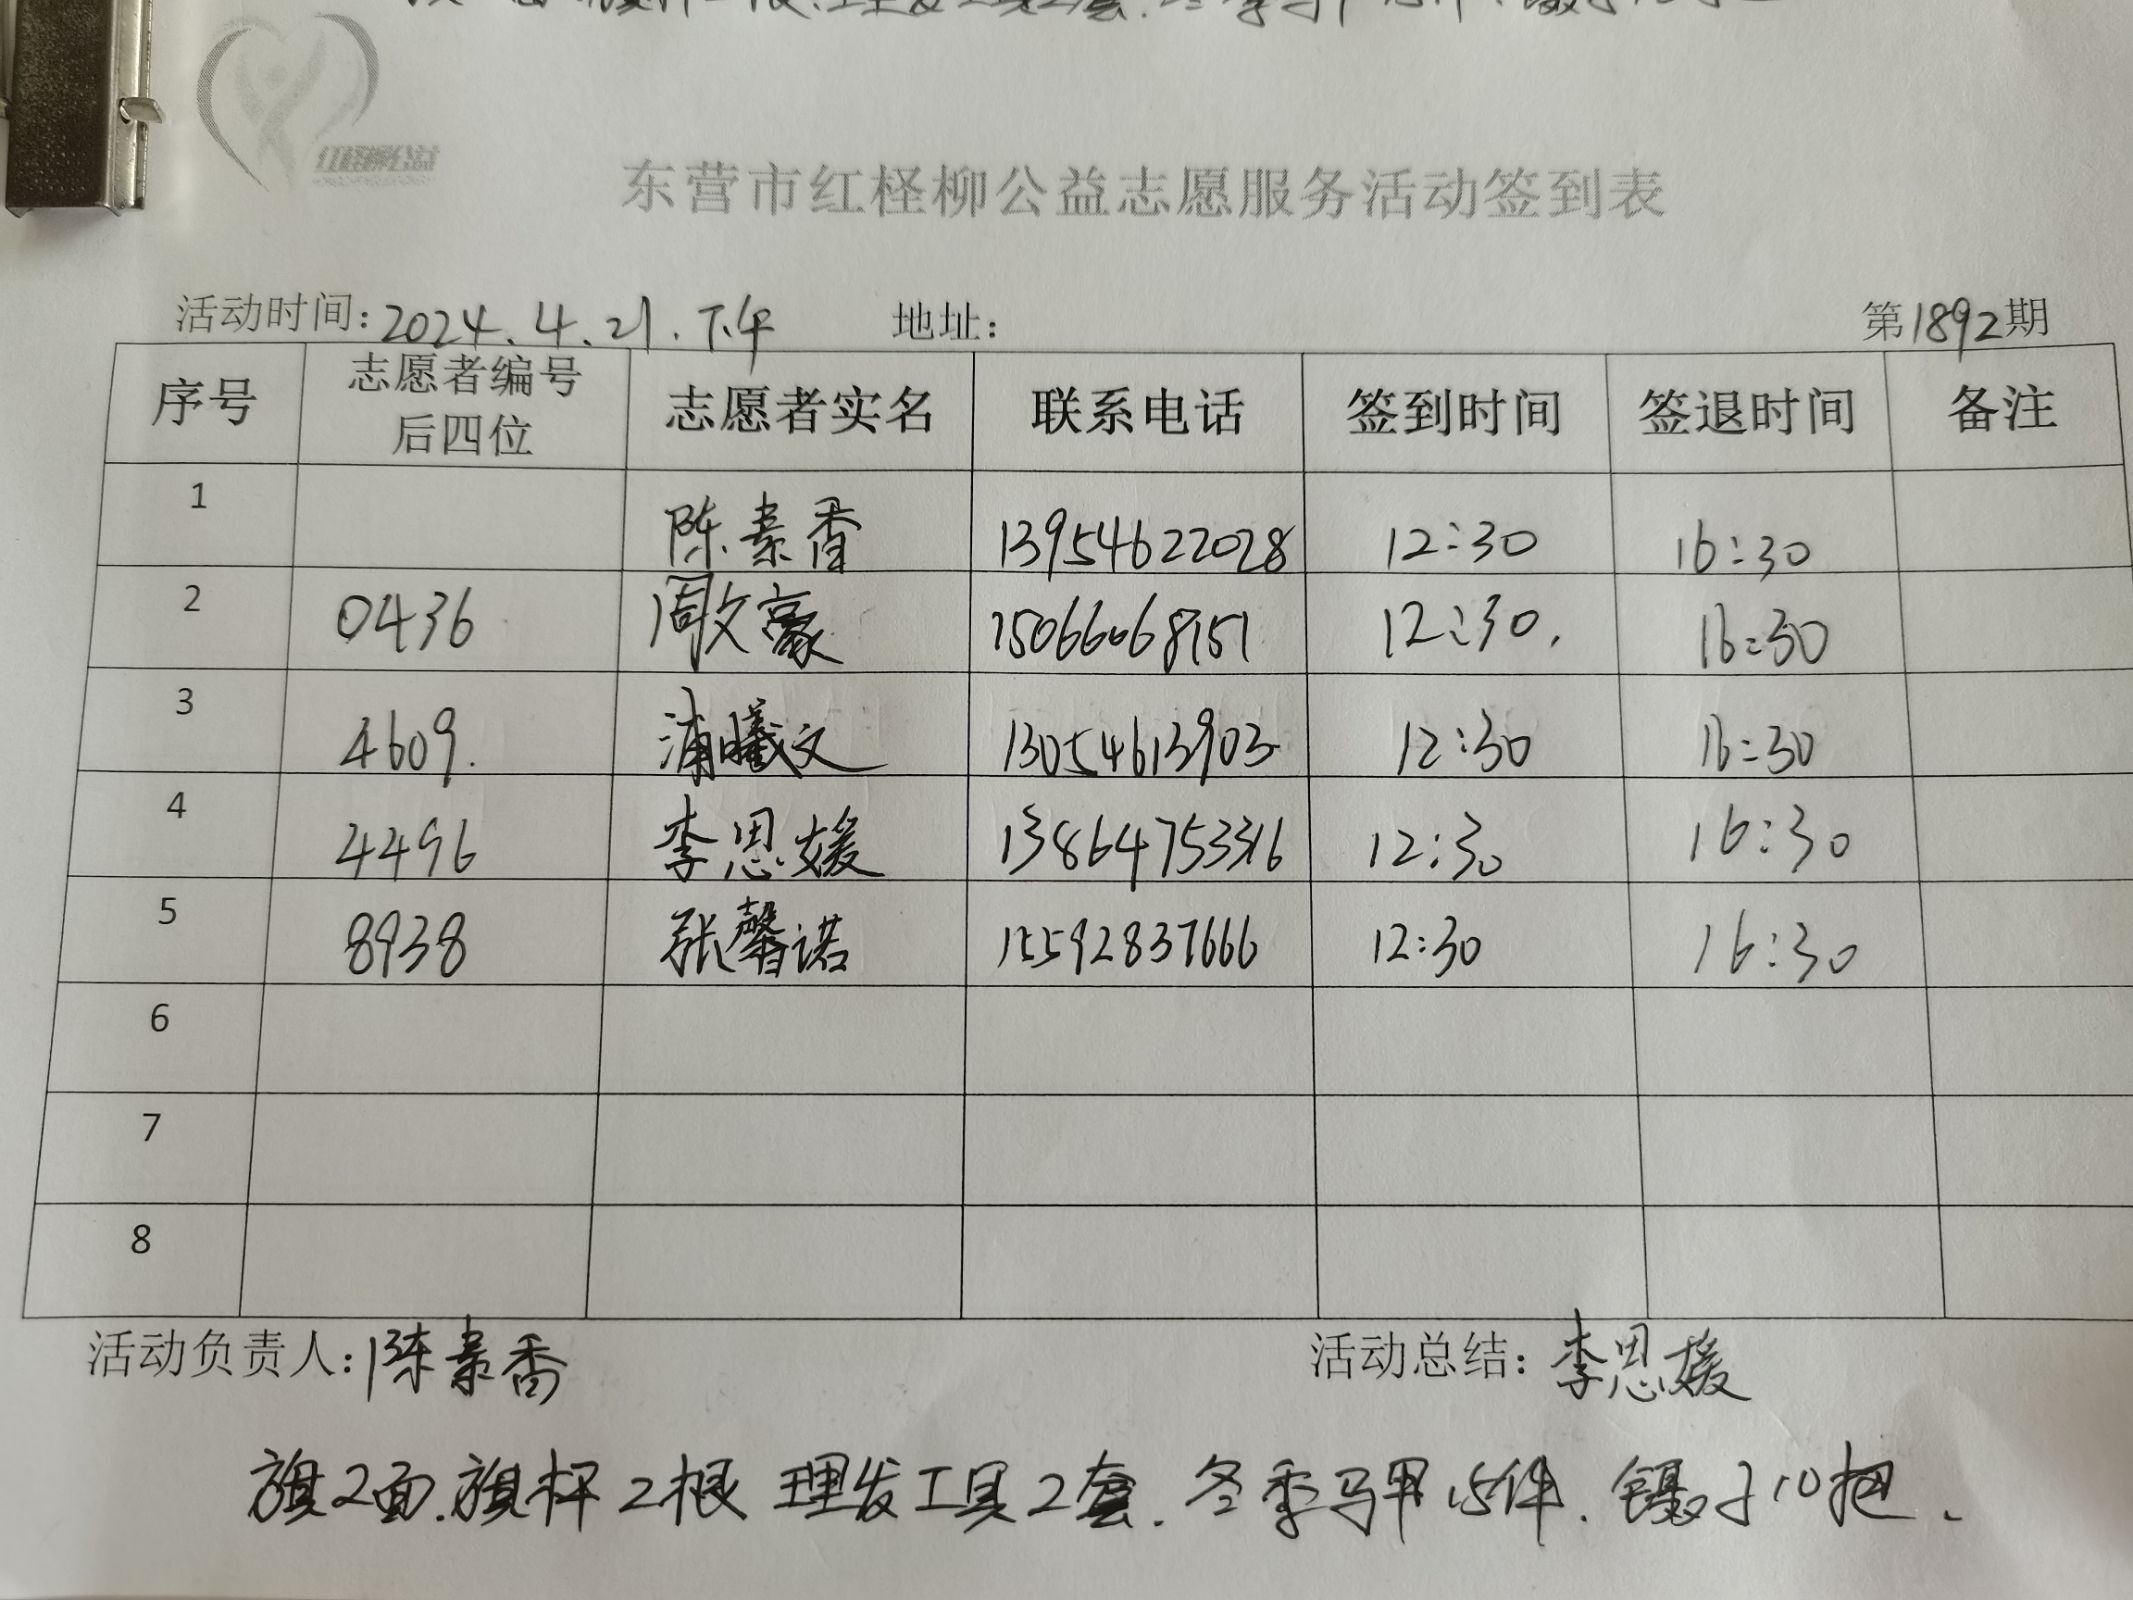 红柽柳公益
东营市红柽柳公益志愿服务活动签到表
活动时间:2024.4.21.下午 地址: 第1892期
序号 志愿者编号后四位 志愿者实名 联系电话 签到时间 签退时间 备注
1 陈素香 13954622028 12:30 16:30
2 0436 周文豪 15066068151 12:30. 16:30
3 4609. 浦曦文 13054613903 12:30 16:30
4 4496 李思媛 13864753316 12:30 16:30
5 8938 张馨诺 15592837666 12:30 16:30
6
7
8
活动负责人:陈素香 活动总结:李思媛
旗2面.旗杆2根 理发工具2套.冬季马甲15件.镊子10把.